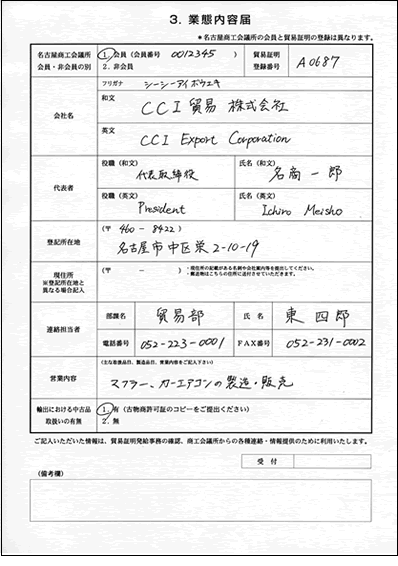 3. 業態内容届
*名古屋商工会議所の会員と貿易証明の登録は異なります。
名古屋商工会議所
会員・非会員の別
1. 会員 (会員番号 0012345 )
2. 非会員
貿易証明
登録番号
A0687
会社名
フリガナ シーシーアイボウエキ
和文
CCI貿易 株式会社
英文
CCI Export Corporation
代表者
役職 (和文)
代表取締役
氏名 (和文)
名商 一郎
役職 (英文)
President
氏名 (英文)
Ichiro Meisho
登記所在地
(〒 460 - 8422 )
名古屋市中区栄2-10-19
現住所
※登記所在地と
異なる場合記入
(〒 - )
・現住所の記載がある名刺や会社案内等を提出してください。
・郵送物はこちらの住所に送付させていただきます。
連絡担当者
部課名
貿易部
氏名
東 四郎
電話番号
052-223-0001
FAX番号
052-231-0002
営業内容
(主な取扱品目、製造品目、営業内容をご記入下さい)
マフラー、カーエアコンの製造・販売
輸出における中古品
取扱いの有無
1. 有 (古物商許可証のコピーをご提出ください)
2. 無
ご記入いただいた情報は、貿易証明発給事務の確認、商工会議所からの各種連絡・情報提供のために利用いたします。
受付
(備考欄)